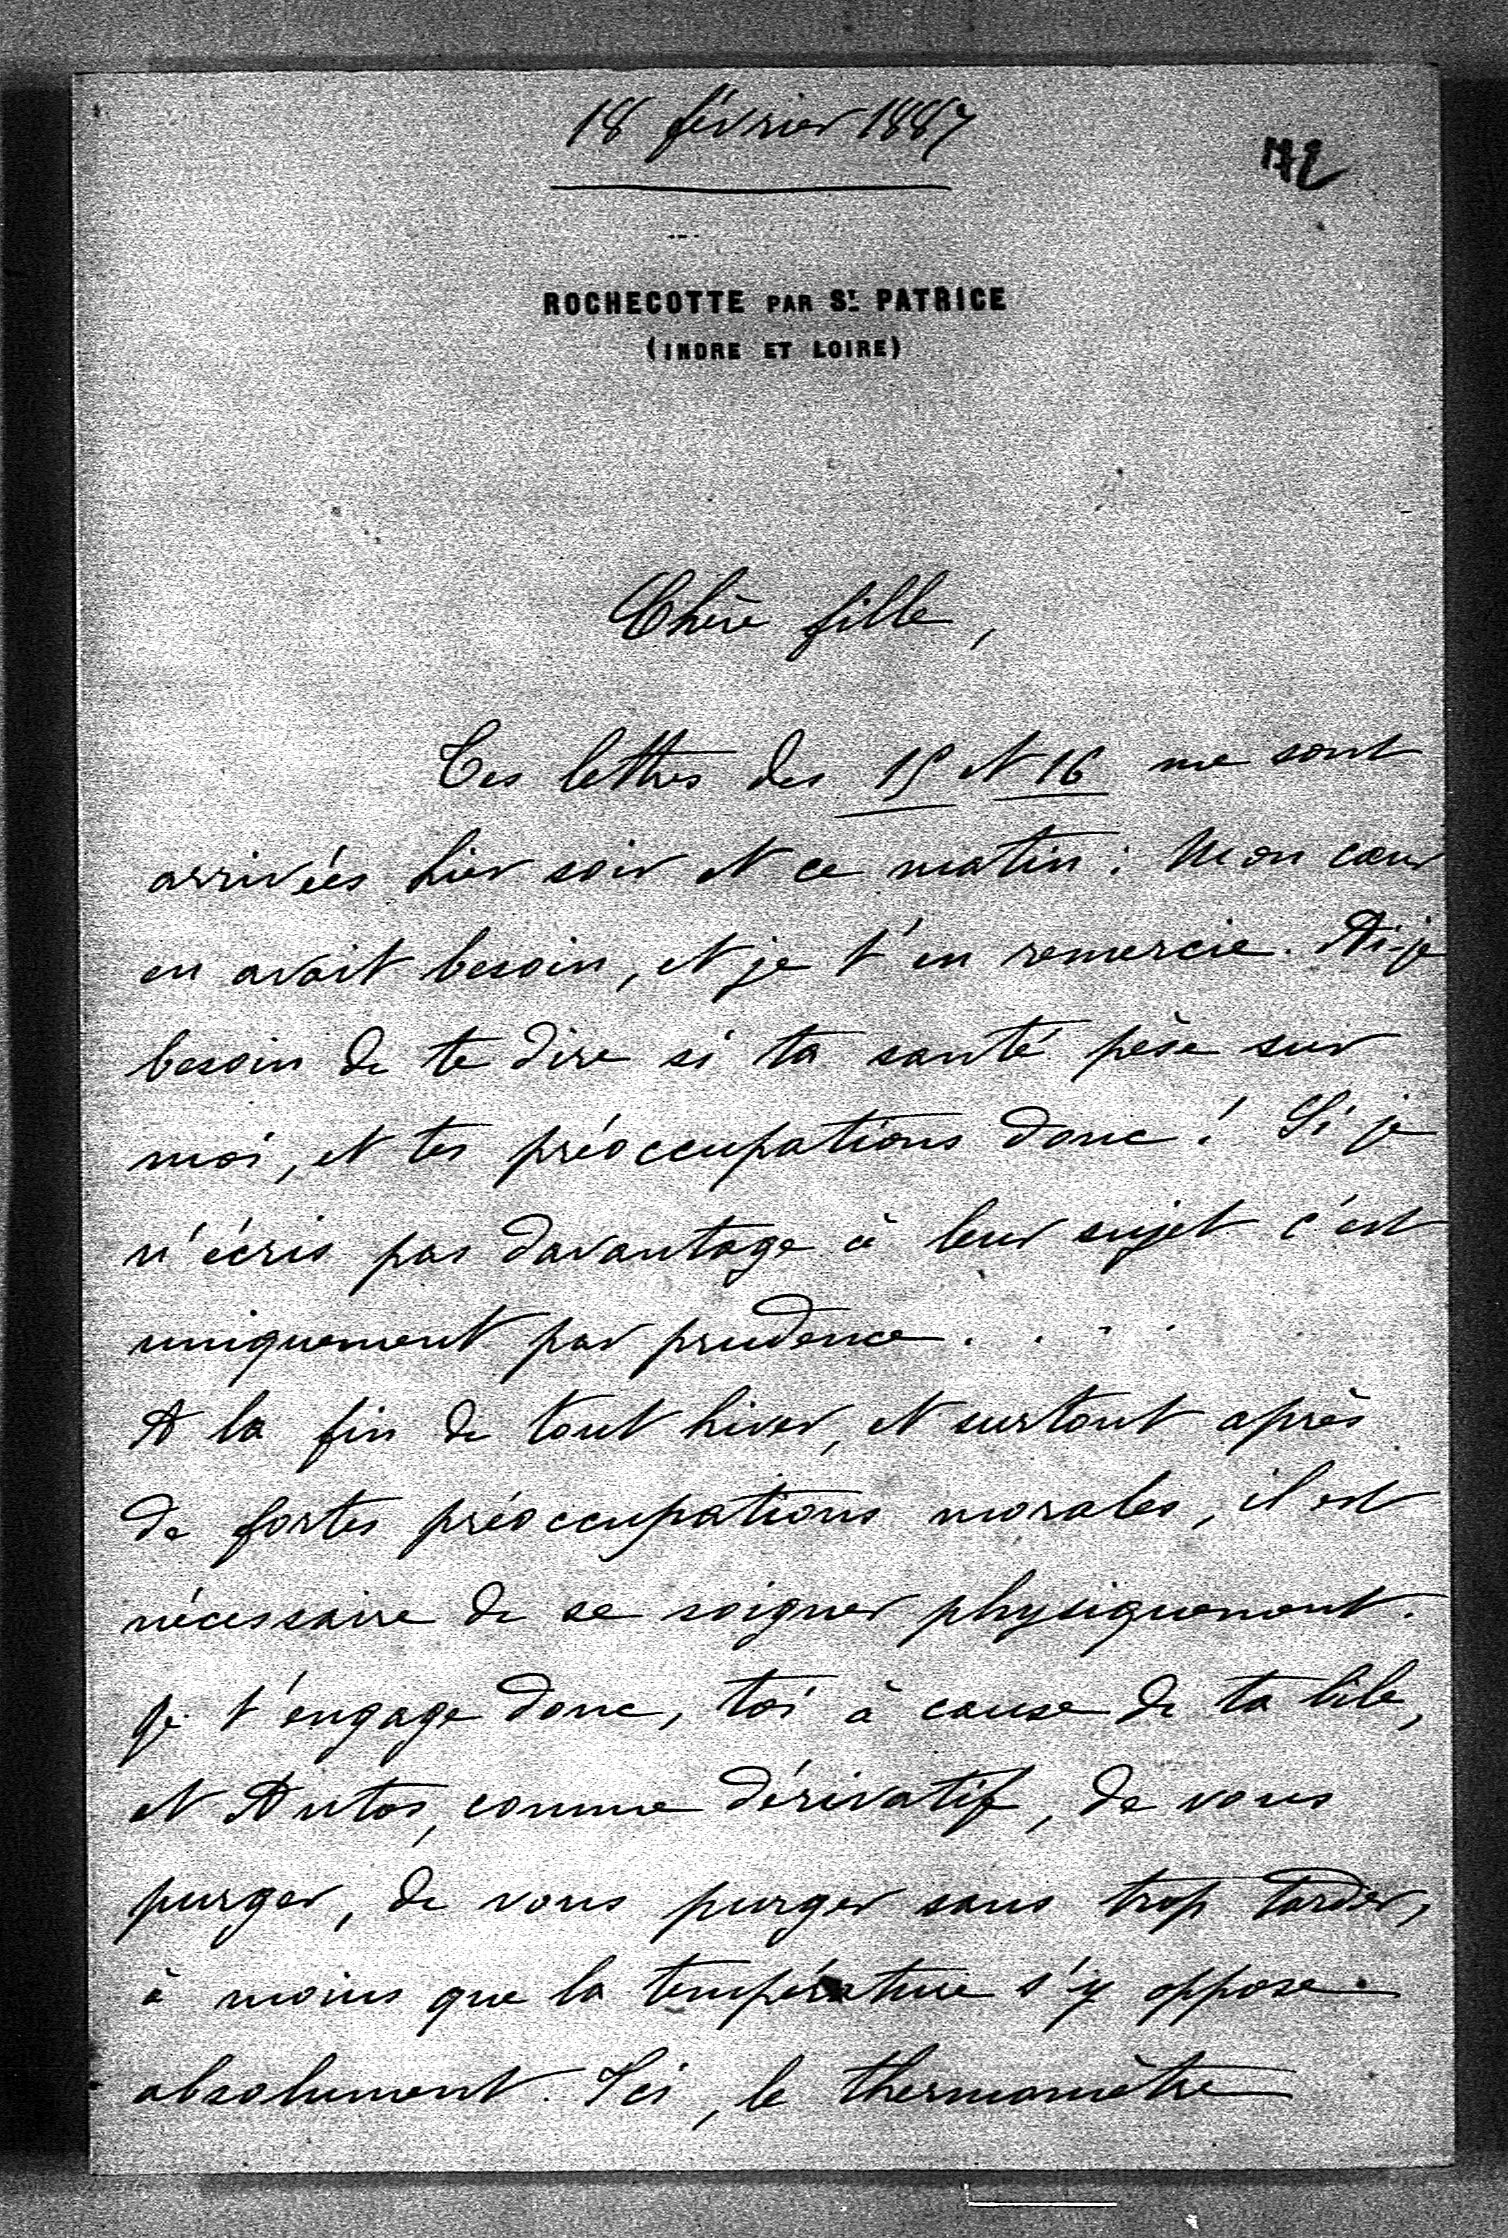 18 février 1887
172
ROCHECOTTE PAR ST PATRICE
(INDRE ET LOIRE)
Chère fille,
Tes lettres des 15 et 16 me sont
arrivées hier soir et ce matin : Mon cœur
en avait besoin, et je t'en remercie. Ai-je
besoin de te dire si ta santé pèse sur
moi, et tes préoccupations donc ! Si je
n'écris pas davantage à leur sujet c'est
uniquement par prudence. . . .
A la fin de tout hiver, et surtout après
de fortes préoccupations morales, il est
nécessaire de se soigner physiquement.
Je t'engage donc, toi à cause de ta bile,
et Antos, comme dérivatif, de vous
purger, de vous purger sans trop tarder,
à moins que la température s'y oppose
absolument. Ici, le thermomètre